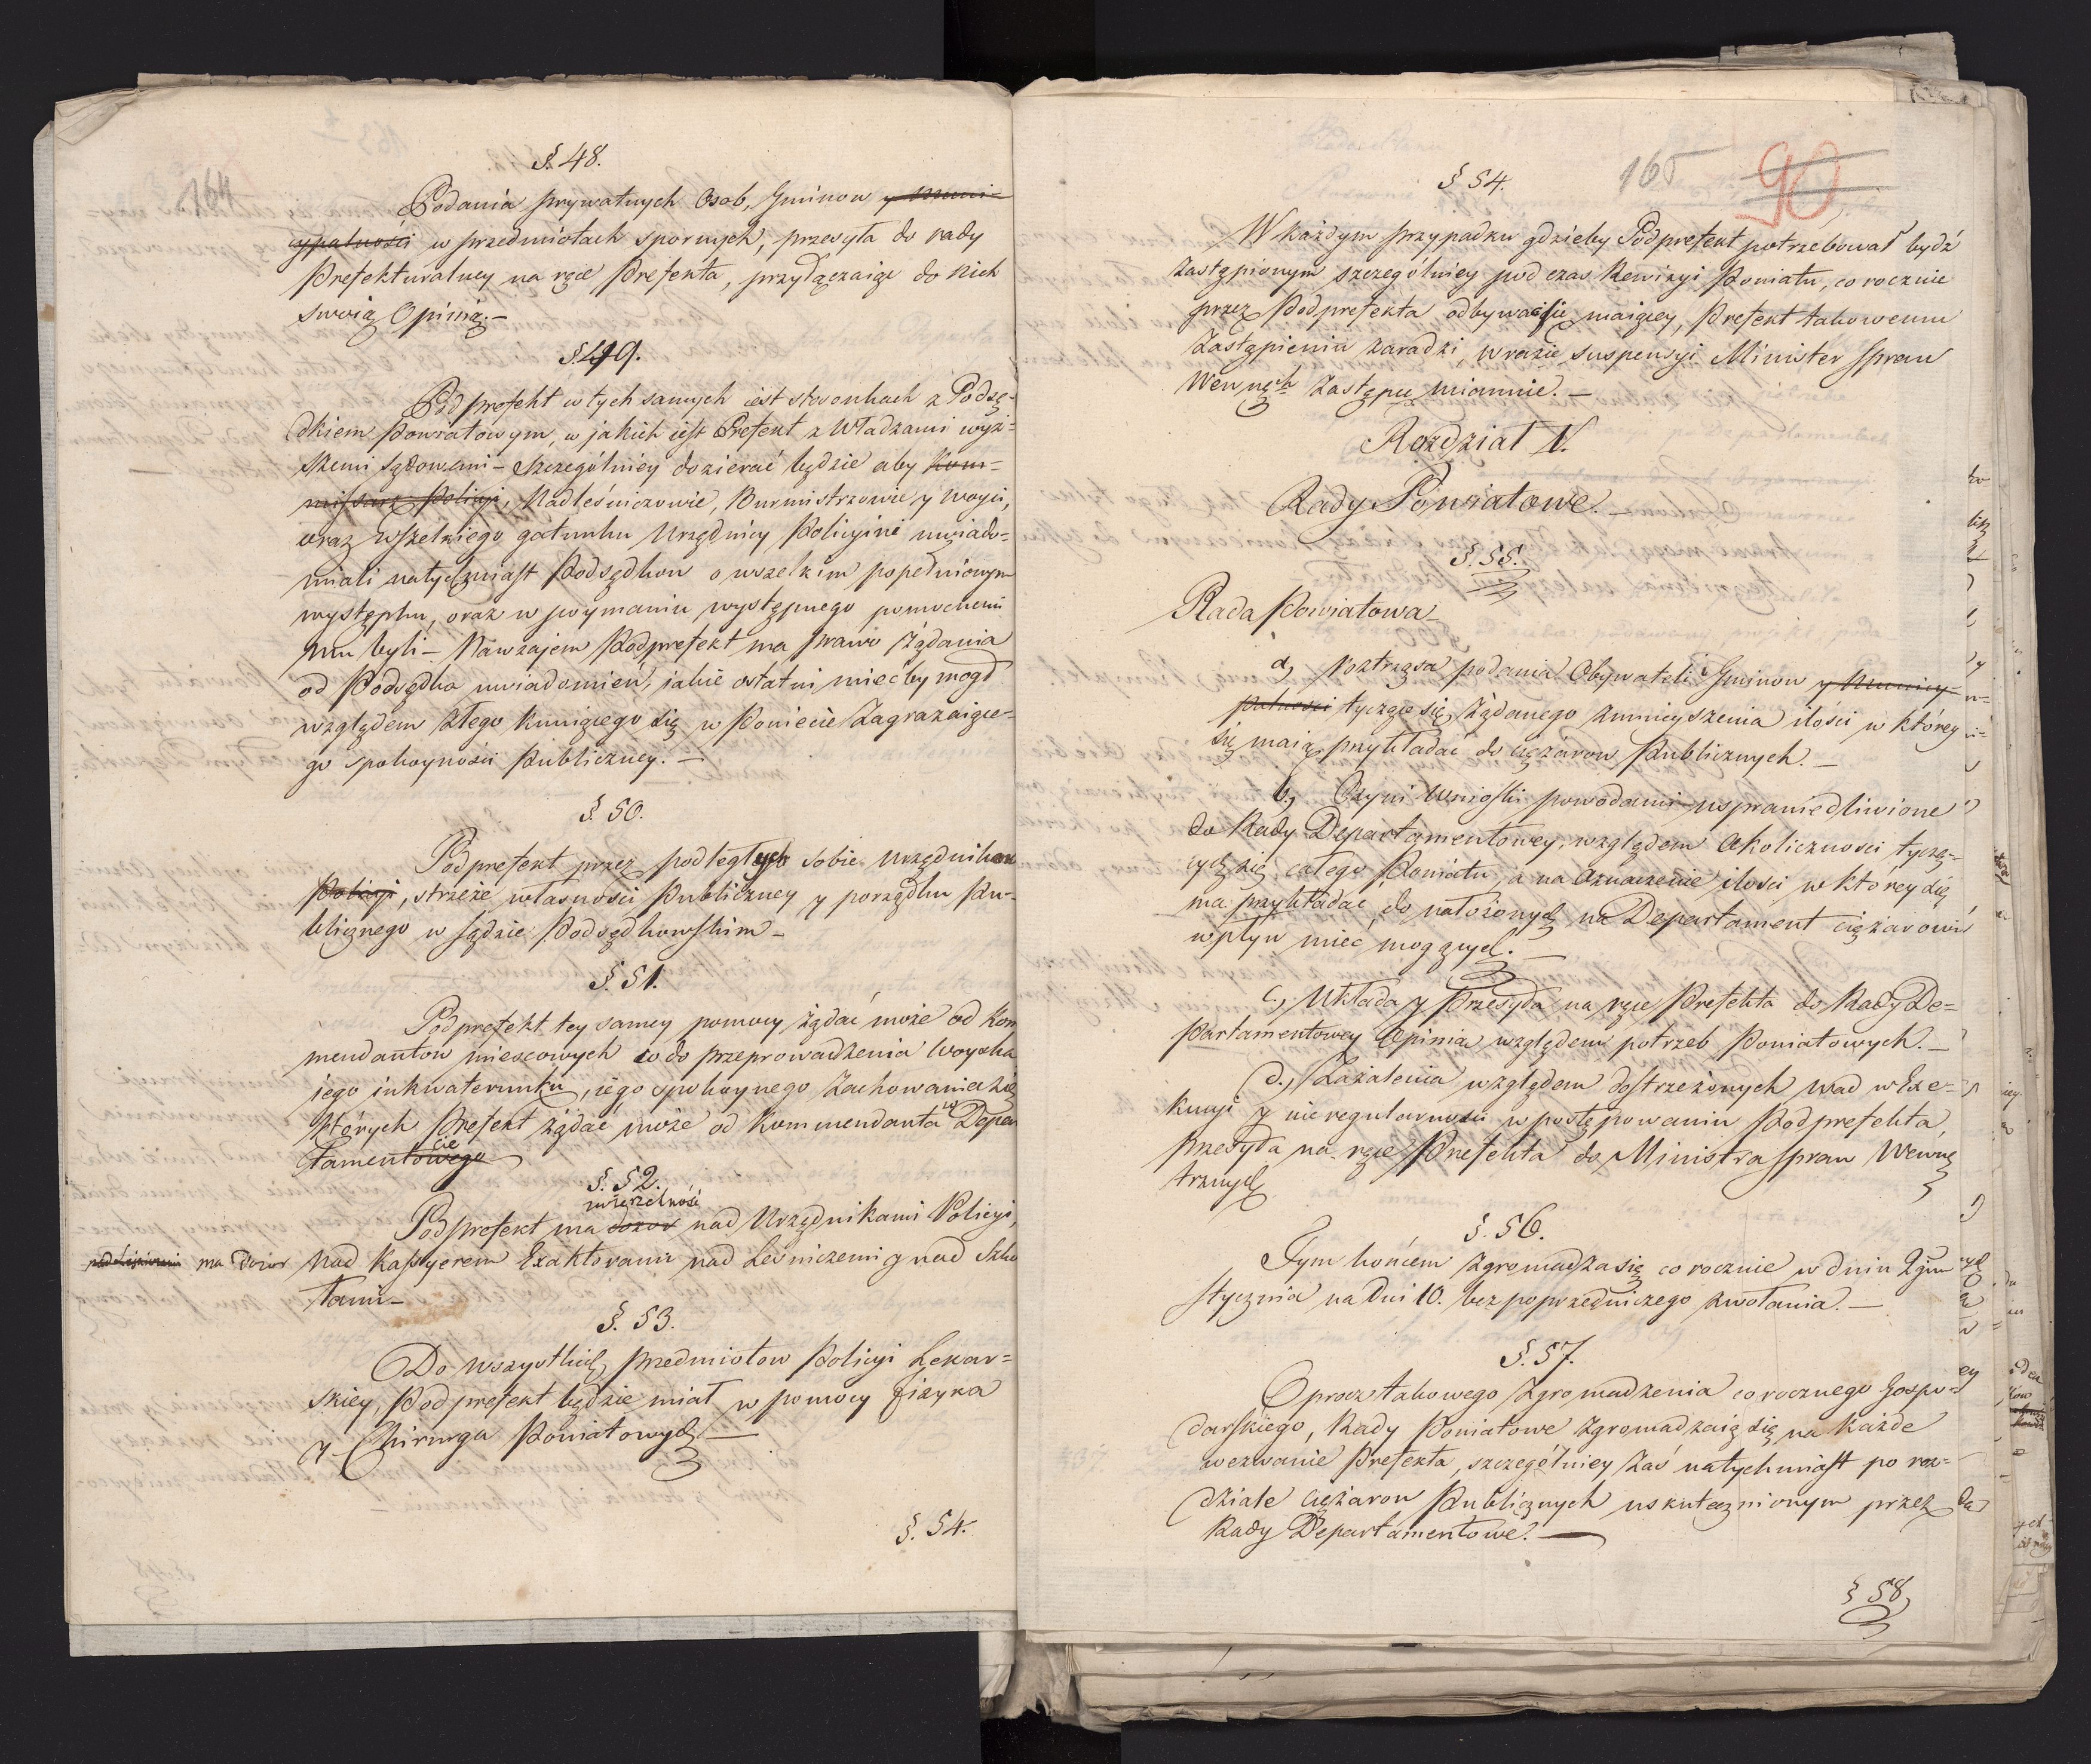 164
§. 48.
Podania prywatnych Osob, Gminow y Muni-
cypalności w przedmiotach spornych, przesyła do rady
Prefekturalney na ręce Prefekta, przyłączaiąc do nich
swoią Opinią.-
§ 49.
Podprefekt w tych samych iest stosonkach z Podsę-
dkiem Powiatowym, w jakich iest Prefekt z Władzami wyż-
szemi sądowemi - szczególniey dozierać będzie aby Kom-
missarze Policyi, Nadleśniczowie, Burmistrzowie y Woyci,
oraz wszelkiego gatunku Urzędnicy Policyini uwiado-
miali natychmiast Podsędkow o wszelkim popełnionym
występku, oraz w poymaniu występnego pomocnemi
mu byli - Nawzajem Podprefekt ma prawo Żądania
od Podsędka uwiadomień, jakie ostatni mieć by mogł
względem złego knuiącego się w Powiecie Zagrażaiące-
go Spokoyności Publiczney. -
§. 50.
Podprefekt przez podległych sobie Urzędnikow
Policyi, strzeże własności Publiczney y porządku Pu-
blicznego w sądzie Podsędkowskim -
§. 51.
Podprefekt tey samey pomocy, Żądać może od Kom
mendantow miescowych co do przeprowadzenia Woyska
jego inkwaterunku, iego spokoynego Zachowania się
których Prefekt żądać może od Kommendanta w Depar
cie
tamentowego
§. 52.
zwierzchność
Podprefekt ma dozor nad Urzędnikami Policyi,
ma dozor nad Kassyerem Exaktorami nad Leśniczemi y nad Szko
łami -
§. 53.
Do wszystkich przedmiotow Policyi Lekar-
skiey, Podprefekt będzie miał w pomocy Fizyka
y Chirurga Powiatowych -
§. 54.
165 90
§ 54.
W każdym przypadku gdzieby Podprefekt potrzebował bydź
Zastąpionym szczególniey pod czas Rewizyi Powiatu, co rocznie
przez Podprefekta odbywać się maiącey, Prefekt takowemu
Zastąpieniu zaradzi, w razie suspensyi Minister Spraw
Wewnęch Zastępcę mianuie. -
Rozdział V.
Rady Powiatowe. -
§. 55.
Rada Powiatowa -
a, roztrząsa podania Obywateli Gminow y Municy
palności tyczące się Żądanego Zmnieyszenia ilości w którey
się maią przykładać do ciężarow Publicznych. -
b, Czyni Wnioski powodami usprawiedliwione
do Rady Departamentowey, względem okoliczności tyczą-
cych się całego Powiatu, a na Oznaczenie ilości w którey się
ma przykładać, do nałożonych na Departament ciężarow
wpływ mieć mogących. -
c, Układa y Przesyła na ręce Prefekta do Rady De-
partamentowey Opinia względem potrzeb Powiatowych. -
d., Zażalenia względem dostrzeżonych wad w Exe-
kucyi y nieregularności w postępowaniu Podprefekta,
przesyła na ręce Prefekta do Ministra Spraw Wewnę
trznych
§. 56.
Tym końcem Zgromadza się co rocznie w dniu 2gim
stycznia na Dni 10. bez poprzedniczego zwołania. -
§. 57.
Oprocz takowego Zgromadzenia corocznego Gospo-
darskiego, Rady Powiatowe Zgromadzaią się na każde
wezwanie Prefekta, szczególniey Zaś natychmiast po roz-
dziale ciężarow Publicznych uskutecznionym przez
Rady Departamentowe. -
§ 58